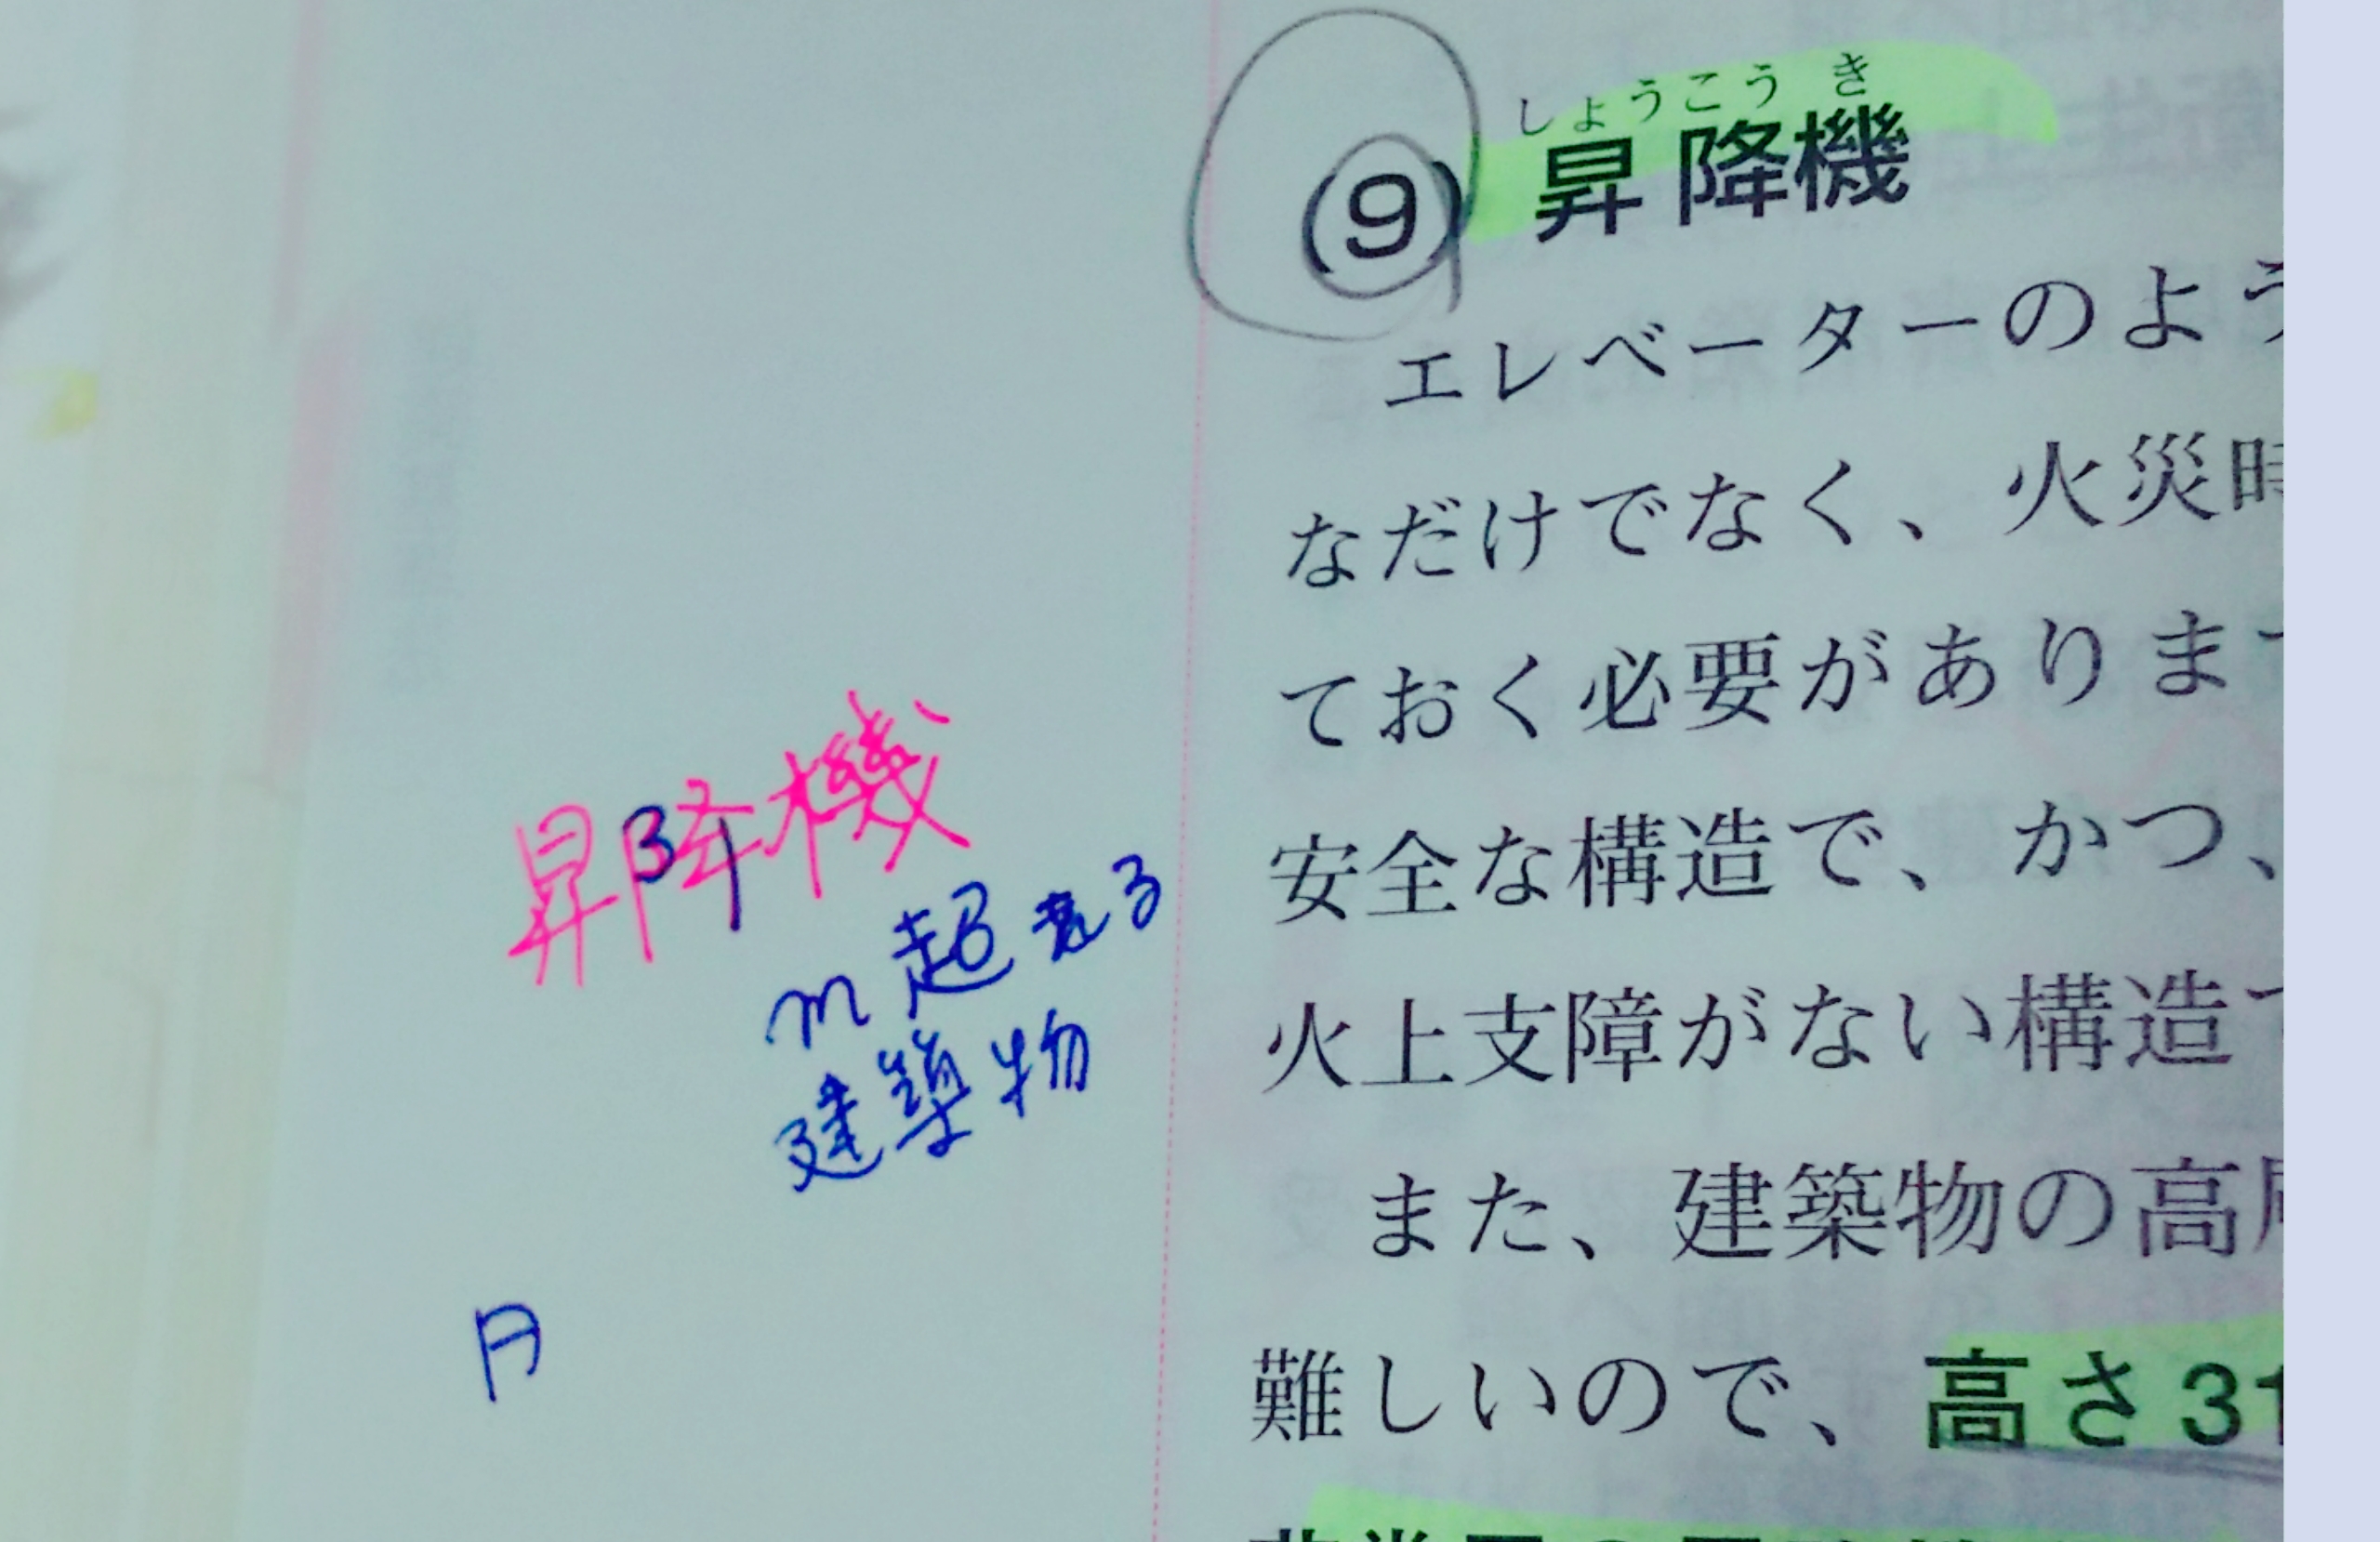 しょうこうき
(9) 昇降機
エレベーターのよう
なだけでなく、火災時
ておく必要がありま
安全な構造で、かつ、
火上支障がない構造
また、建築物の高
難しいので、高さ31
昇降機
m超える
建築物